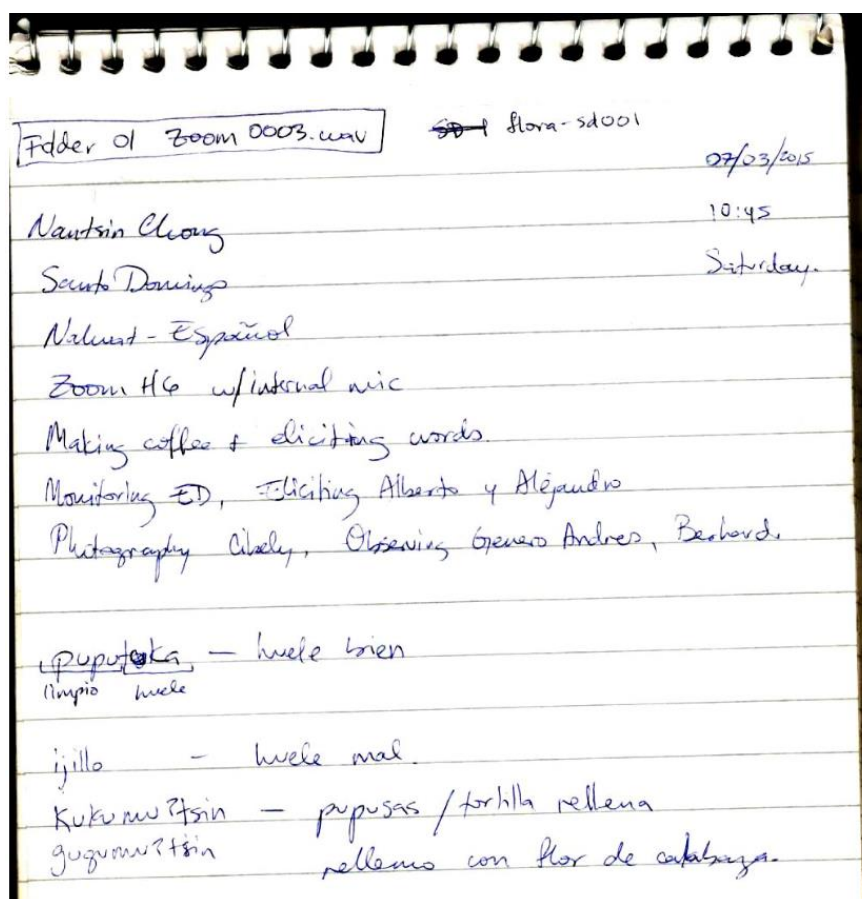 Folder 01 Zoom 0003.wav flora-sd001
07/03/2015
10:45
Nantsin Chong
Saturday.
Santo Domingo
Nahuat - Español
Zoom H6 w/internal mic
Making coffee + eliciting words.
Monitoring ED, Eliciting Alberto y Alejandro
Photography Cibely, Observing Genero Andres,
puputuka — huele bien
limpio huele
ijillo - huele mal.
kukumu?tsin — pupusas / tortilla rellena
gugumu?tsin relleno con flor de calabaza.